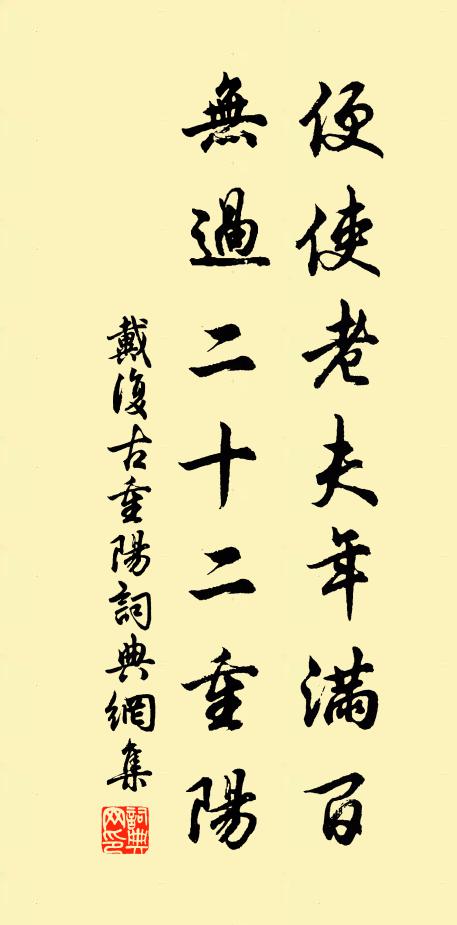 便使老夫年滿百
無過二十二重陽
戴復古重陽詞典網集
詞典網印